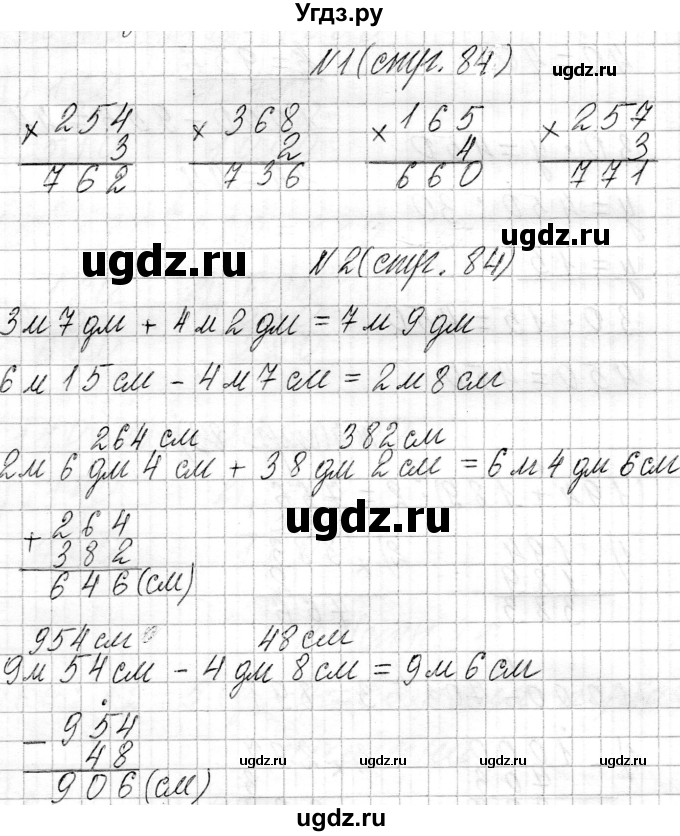 Угдз.ру
№1 (стр. 84)
ugdz.ru
× 254 × 368 × 165 × 257
3 2 4 3
762 736 660 771
ugdz.ru
ugdz.ru
№2 (стр. 84)
3м 7дм + 4м 2дм = 7м 9дм
6м 15см - 4м 7см = 2м 8см
264 см 382 см
2м 6дм 4см + 38дм 2см = 6м 4дм 6см
ugdz.ru
+ 264
382
646 (см)
954 см 48 см
9м 54см - 4дм 8см = 9м 6см
- 954
48
906 (см)
ugdz.ru ugdz.ru ugdz.ru
ugdz.ru